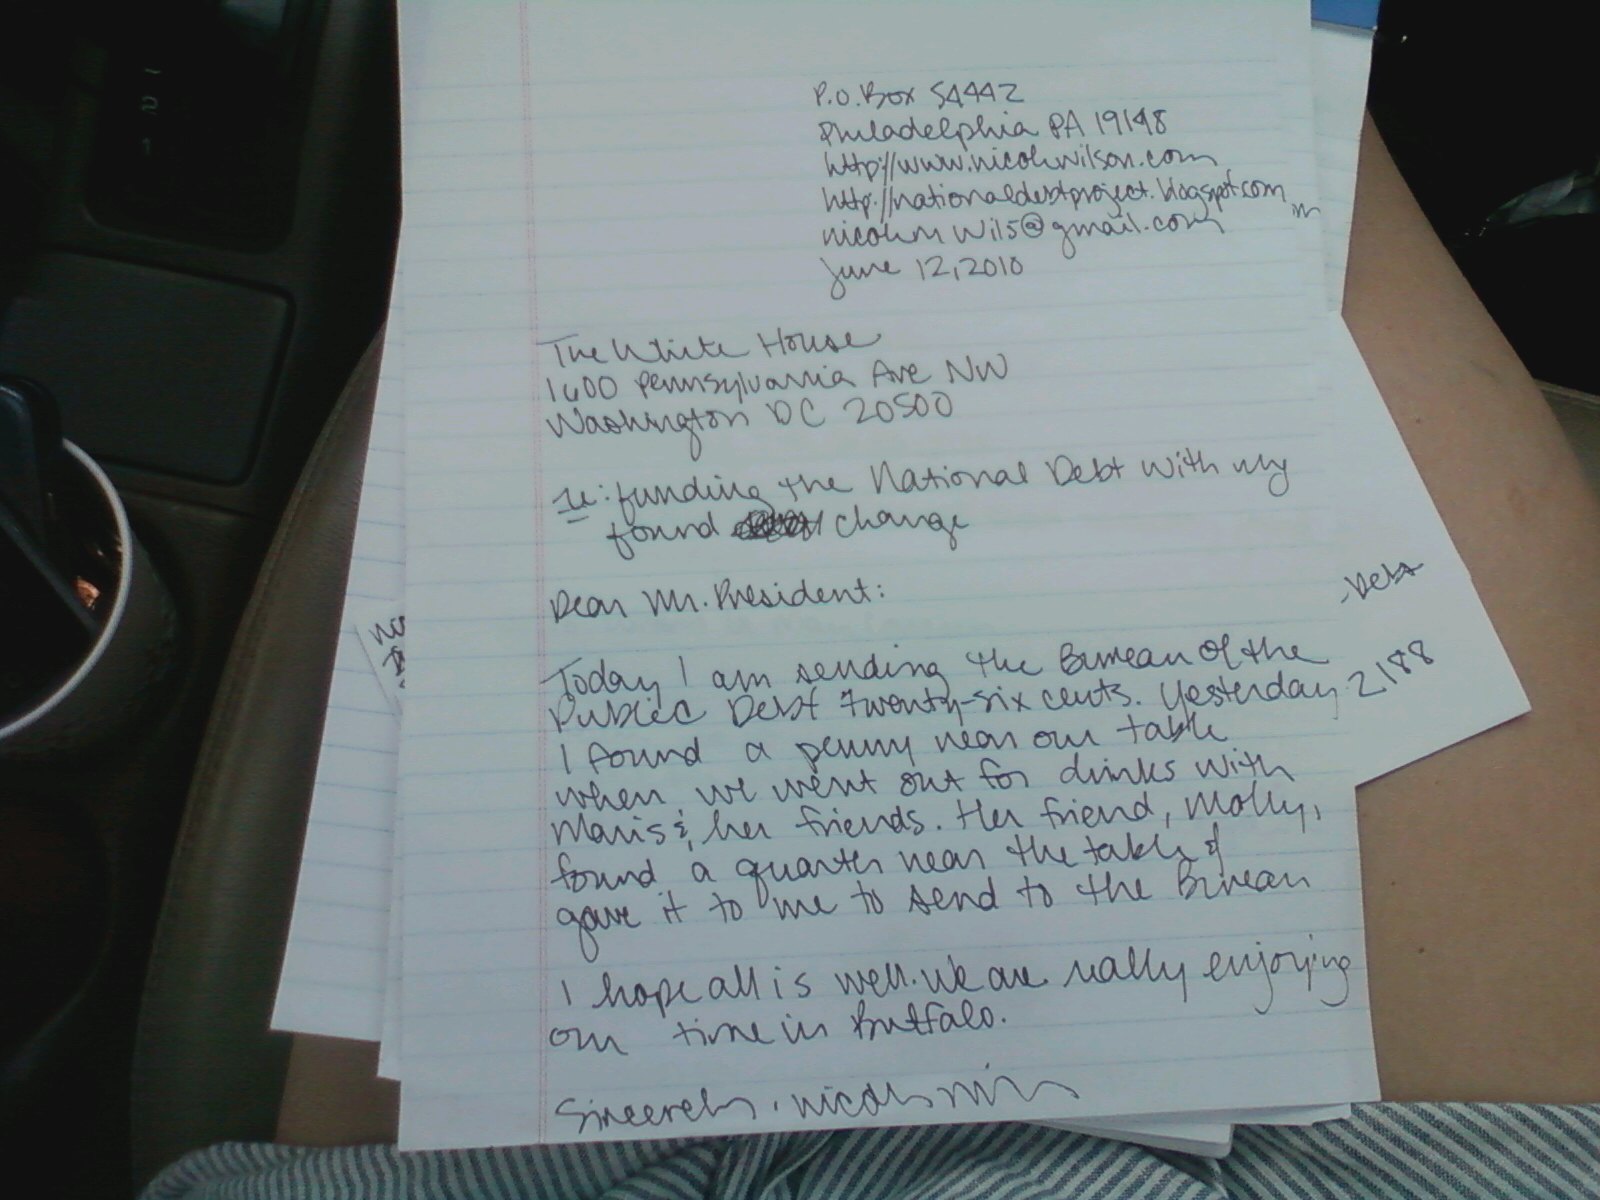 P.O. Box 54442
Philadelphia PA 19148
http://www.nicolewilson.com
http://nationaldebtproject.blogspot.com
m
nicolemwils@gmail.com
June 12, 2010
The White House
1600 Pennsylvania Ave NW
Washington DC 20500
re: funding the National Debt with my
found change
Dear Mr. President:
Today I am sending the Bureau of the
Public Debt twenty-six cents. Yesterday
I found a penny near our table
when we went out for drinks with
Maris & her friends. Her friend, Molly,
found a quarter near the table &
gave it to me to send to the Bureau
I hope all is well. We are really enjoying
our time in Buffalo.
Sincerely, Nicole Wilson
Debt
2188